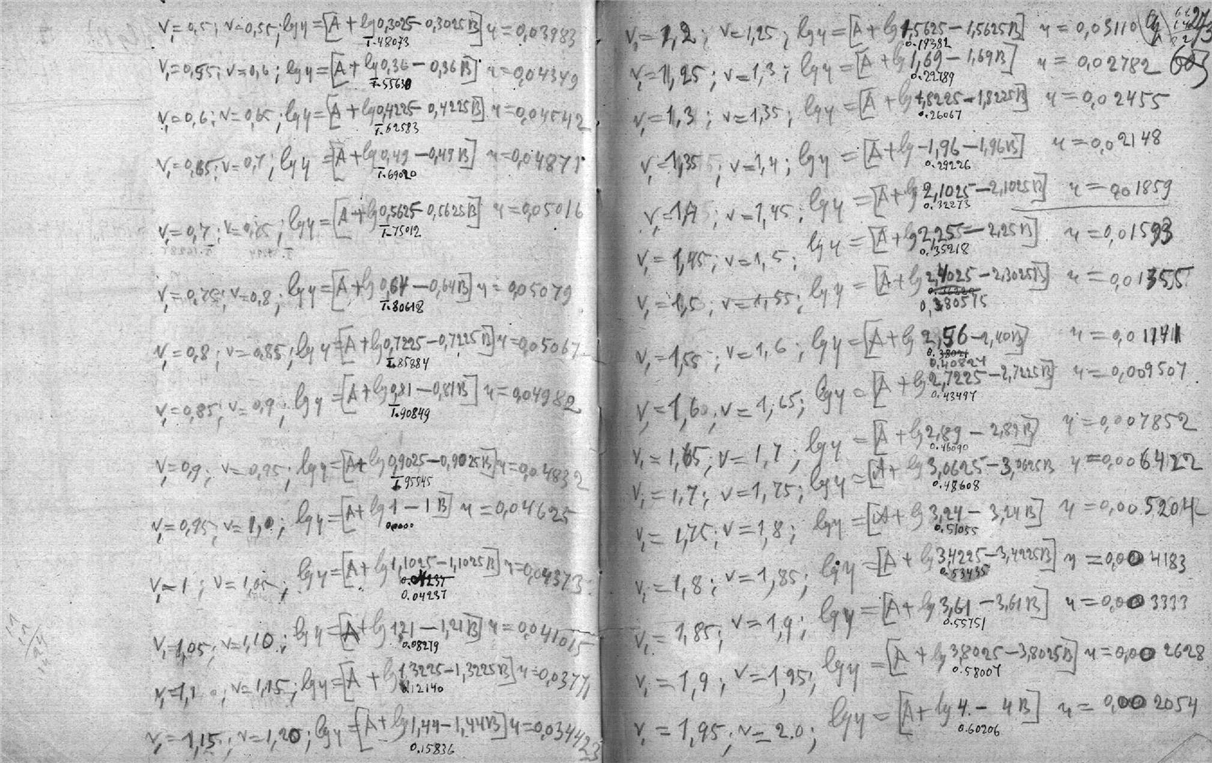 v₁=0,5; v=0,55; lg y=[A+lg 0,3025-0,3025B] y=0,03983
1̄.48073
v₁=0,55; v=0,6; lg y=[A+lg 0,36-0,36B] y=0,04349
1̄.55630
v₁=0,6; v=0,65; lg y=[A+lg 0,4225-0,4225B] y=0,04542
1̄.62583
v₁=0,65; v=0,7; lg y=[A+lg 0,49-0,49B] y=0,04871
1̄.69020
v₁=0,7; v=0,75; lg y=[A+lg 0,5625-0,5625B] y=0,05016
1̄.75012
v₁=0,75; v=0,8; lg y=[A+lg 0,64-0,64B] y=0,05079
1̄.80618
v₁=0,8; v=0,85; lg y=[A+lg 0,7225-0,7225B] y=0,05067
1̄.85884
v₁=0,85; v=0,9; lg y=[A+lg 0,81-0,81B] y=0,04982
1̄.90849
v₁=0,9; v=0,95; lg y=[A+lg 0,9025-0,9025B] y=0,04832
1̄.95545
v₁=0,95; v=1,0; lg y=[A+lg 1-1B] y=0,04625
0.0000
v₁=1; v=1,05; lg y=[A+lg 1,1025-1,1025B] y=0,04373
0.04237
0.04237
v₁=1,05; v=1,10; lg y=[A+lg 1,21-1,21B] y=0,041015
0.08279
v₁=1,1; v=1,15; lg y=[A+lg 1,3225-1,3225B] y=0,03771
0.12140
v₁=1,15; v=1,20; lg y=[A+lg 1,44-1,44B] y=0,034423
0.15836
v₁=1,2; v=1,25; lg y=[A+lg 1,5625-1,5625B] y=0,03110
0.19382
v₁=1,25; v=1,3; lg y=[A+lg 1,69-1,69B] y=0,02782
0.22789
v₁=1,3; v=1,35; lg y=[A+lg 1,8225-1,8225B] y=0,02455
0.26067
v₁=1,35; v=1,4; lg y=[A+lg 1,96-1,96B] y=0,02148
0.29226
v₁=1,4; v=1,45; lg y=[A+lg 2,1025-2,1025B] y=0,01859
0.32273
v₁=1,45; v=1,5; lg y=[A+lg 2,25-2,25B] y=0,01593
0.35218
v₁=1,5; v=1,55; lg y=[A+lg 2,4025-2,3025B] y=0,01355
0.380575
v₁=1,55; v=1,6; lg y=[A+lg 2,56-2,40B] y=0,01141
0.38021
0.40824
v₁=1,60; v=1,65; lg y=[A+lg 2,7225-2,7225B] y=0,009507
0.43497
v₁=1,65; v=1,7; lg y=[A+lg 2,89-2,89B] y=0,007852
0.46090
v₁=1,7; v=1,75; lg y=[A+lg 3,0625-3,0625B] y=0,006422
0.48608
v₁=1,75; v=1,8; lg y=[A+lg 3,24-3,24B] y=0,005204
0.51055
v₁=1,8; v=1,85; lg y=[A+lg 3,4225-3,4225B] y=0,004183
0.53435
v₁=1,85; v=1,9; lg y=[A+lg 3,61-3,61B] y=0,003333
0.55751
v₁=1,9; v=1,95; lg y=[A+lg 3,8025-3,8025B] y=0,002628
0.58007
v₁=1,95; v=2.0; lg y=[A+lg 4.-4B] y=0,002054
0.60206